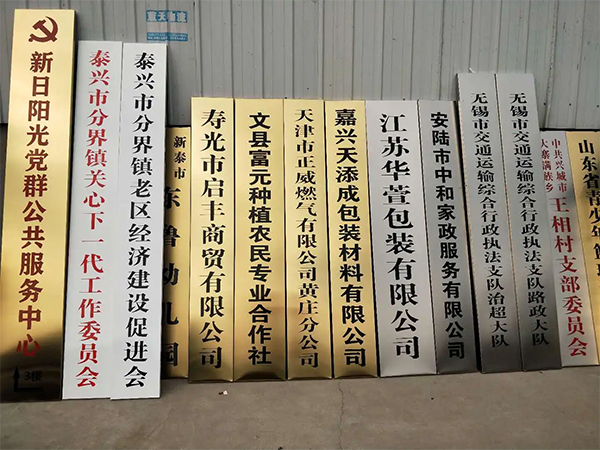 新日阳光党群公共服务中心
3楼
泰兴市分界镇关心下一代工作委员会
泰兴市分界镇老区经济建设促进会
新泰市
东鲁幼儿园
寿光市启丰商贸有限公司
文县富元种植农民专业合作社
天津市正威燃气有限公司黄庄分公司
嘉兴天添成包装材料有限公司
江苏华萱包装有限公司
安陆市中和家政服务有限公司
无锡市交通运输综合行政执法支队治超大队
无锡市交通运输综合行政执法支队路政大队
中共兴城市
大寨满族乡
王相村支部委员会
山东省青少年